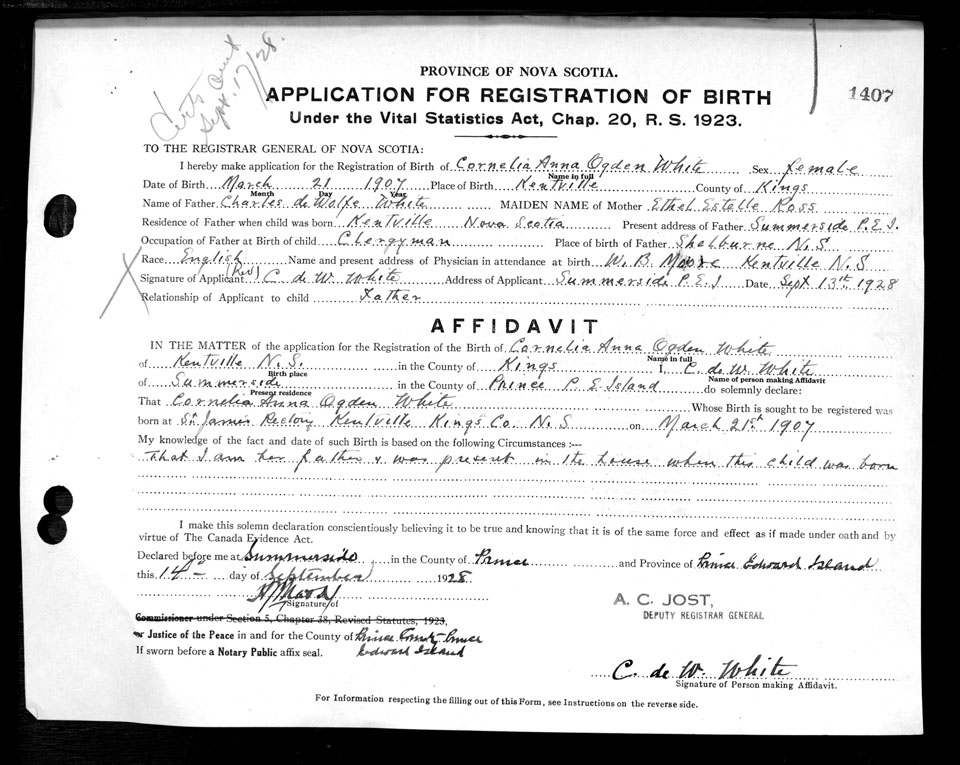 Certs Sent
Sept. 17/28.
PROVINCE OF NOVA SCOTIA.
APPLICATION FOR REGISTRATION OF BIRTH
1407
Under the Vital Statistics Act, Chap. 20, R. S. 1923.
TO THE REGISTRAR GENERAL OF NOVA SCOTIA:
I hereby make application for the Registration of Birth of Cornelia Anna Ogden White Sex female
Name in full
Date of Birth March 21 1907 Place of Birth Kentville County of Kings
Month Day Year
Name of Father Charles de Wolfe White MAIDEN NAME of Mother Ethel Estelle Ross
Residence of Father when child was born Kentville Nova Scotia Present address of Father Summerside P.E.I.
Occupation of Father at Birth of child Clergyman Place of birth of Father Shelburne N.S
Race English Name and present address of Physician in attendance at birth W. B. Moore Kentville N.S
Signature of Applicant (Rev) C de W. White Address of Applicant Summerside P.E.I Date Sept 13th 1928
Relationship of Applicant to child Father
AFFIDAVIT
IN THE MATTER of the application for the Registration of the Birth of Cornelia Anna Ogden White
Name in full
of Kentville N.S. in the County of Kings I, C. de W. White
Birth place Name of person making Affidavit
of Summerside in the County of Prince P E Island do solemnly declare:
Present residence
That Cornelia Anna Ogden White Whose Birth is sought to be registered was
born at St James Rectory Kentville Kings Co. N.S on March 21st 1907
My knowledge of the fact and date of such Birth is based on the following Circumstances :—
That I am her father & was present in the house when this child was born
I make this solemn declaration conscientiously believing it to be true and knowing that it is of the same force and effect as if made under oath and by
virtue of The Canada Evidence Act.
Declared before me at Summerside in the County of Prince and Province of Prince Edward Island
this 14th day of September 1928
Signature of
A. C. JOST,
DEPUTY REGISTRAR GENERAL
Commissioner under Section 5, Chapter 38, Revised Statutes, 1923,
or Justice of the Peace in and for the County of Prince County Prince
Edward Island
If sworn before a Notary Public affix seal.
C. de W. White
Signature of Person making Affidavit.
For Information respecting the filling out of this Form, see Instructions on the reverse side.